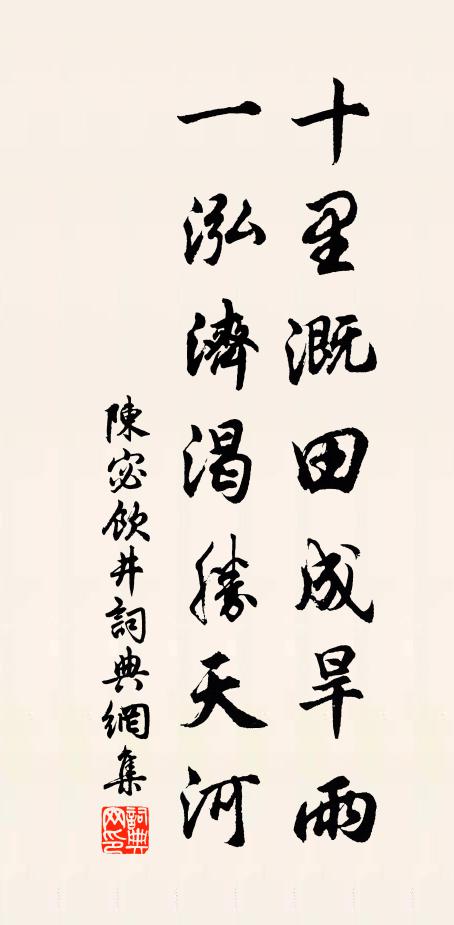 十里溉田成旱雨
一泓濟渴勝天河
陳宓飲井詞典網集
詞典網印